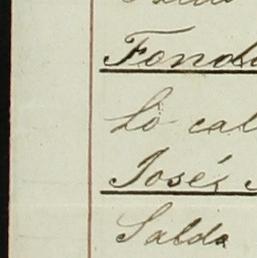 Fond
Lo cal
José
Salda